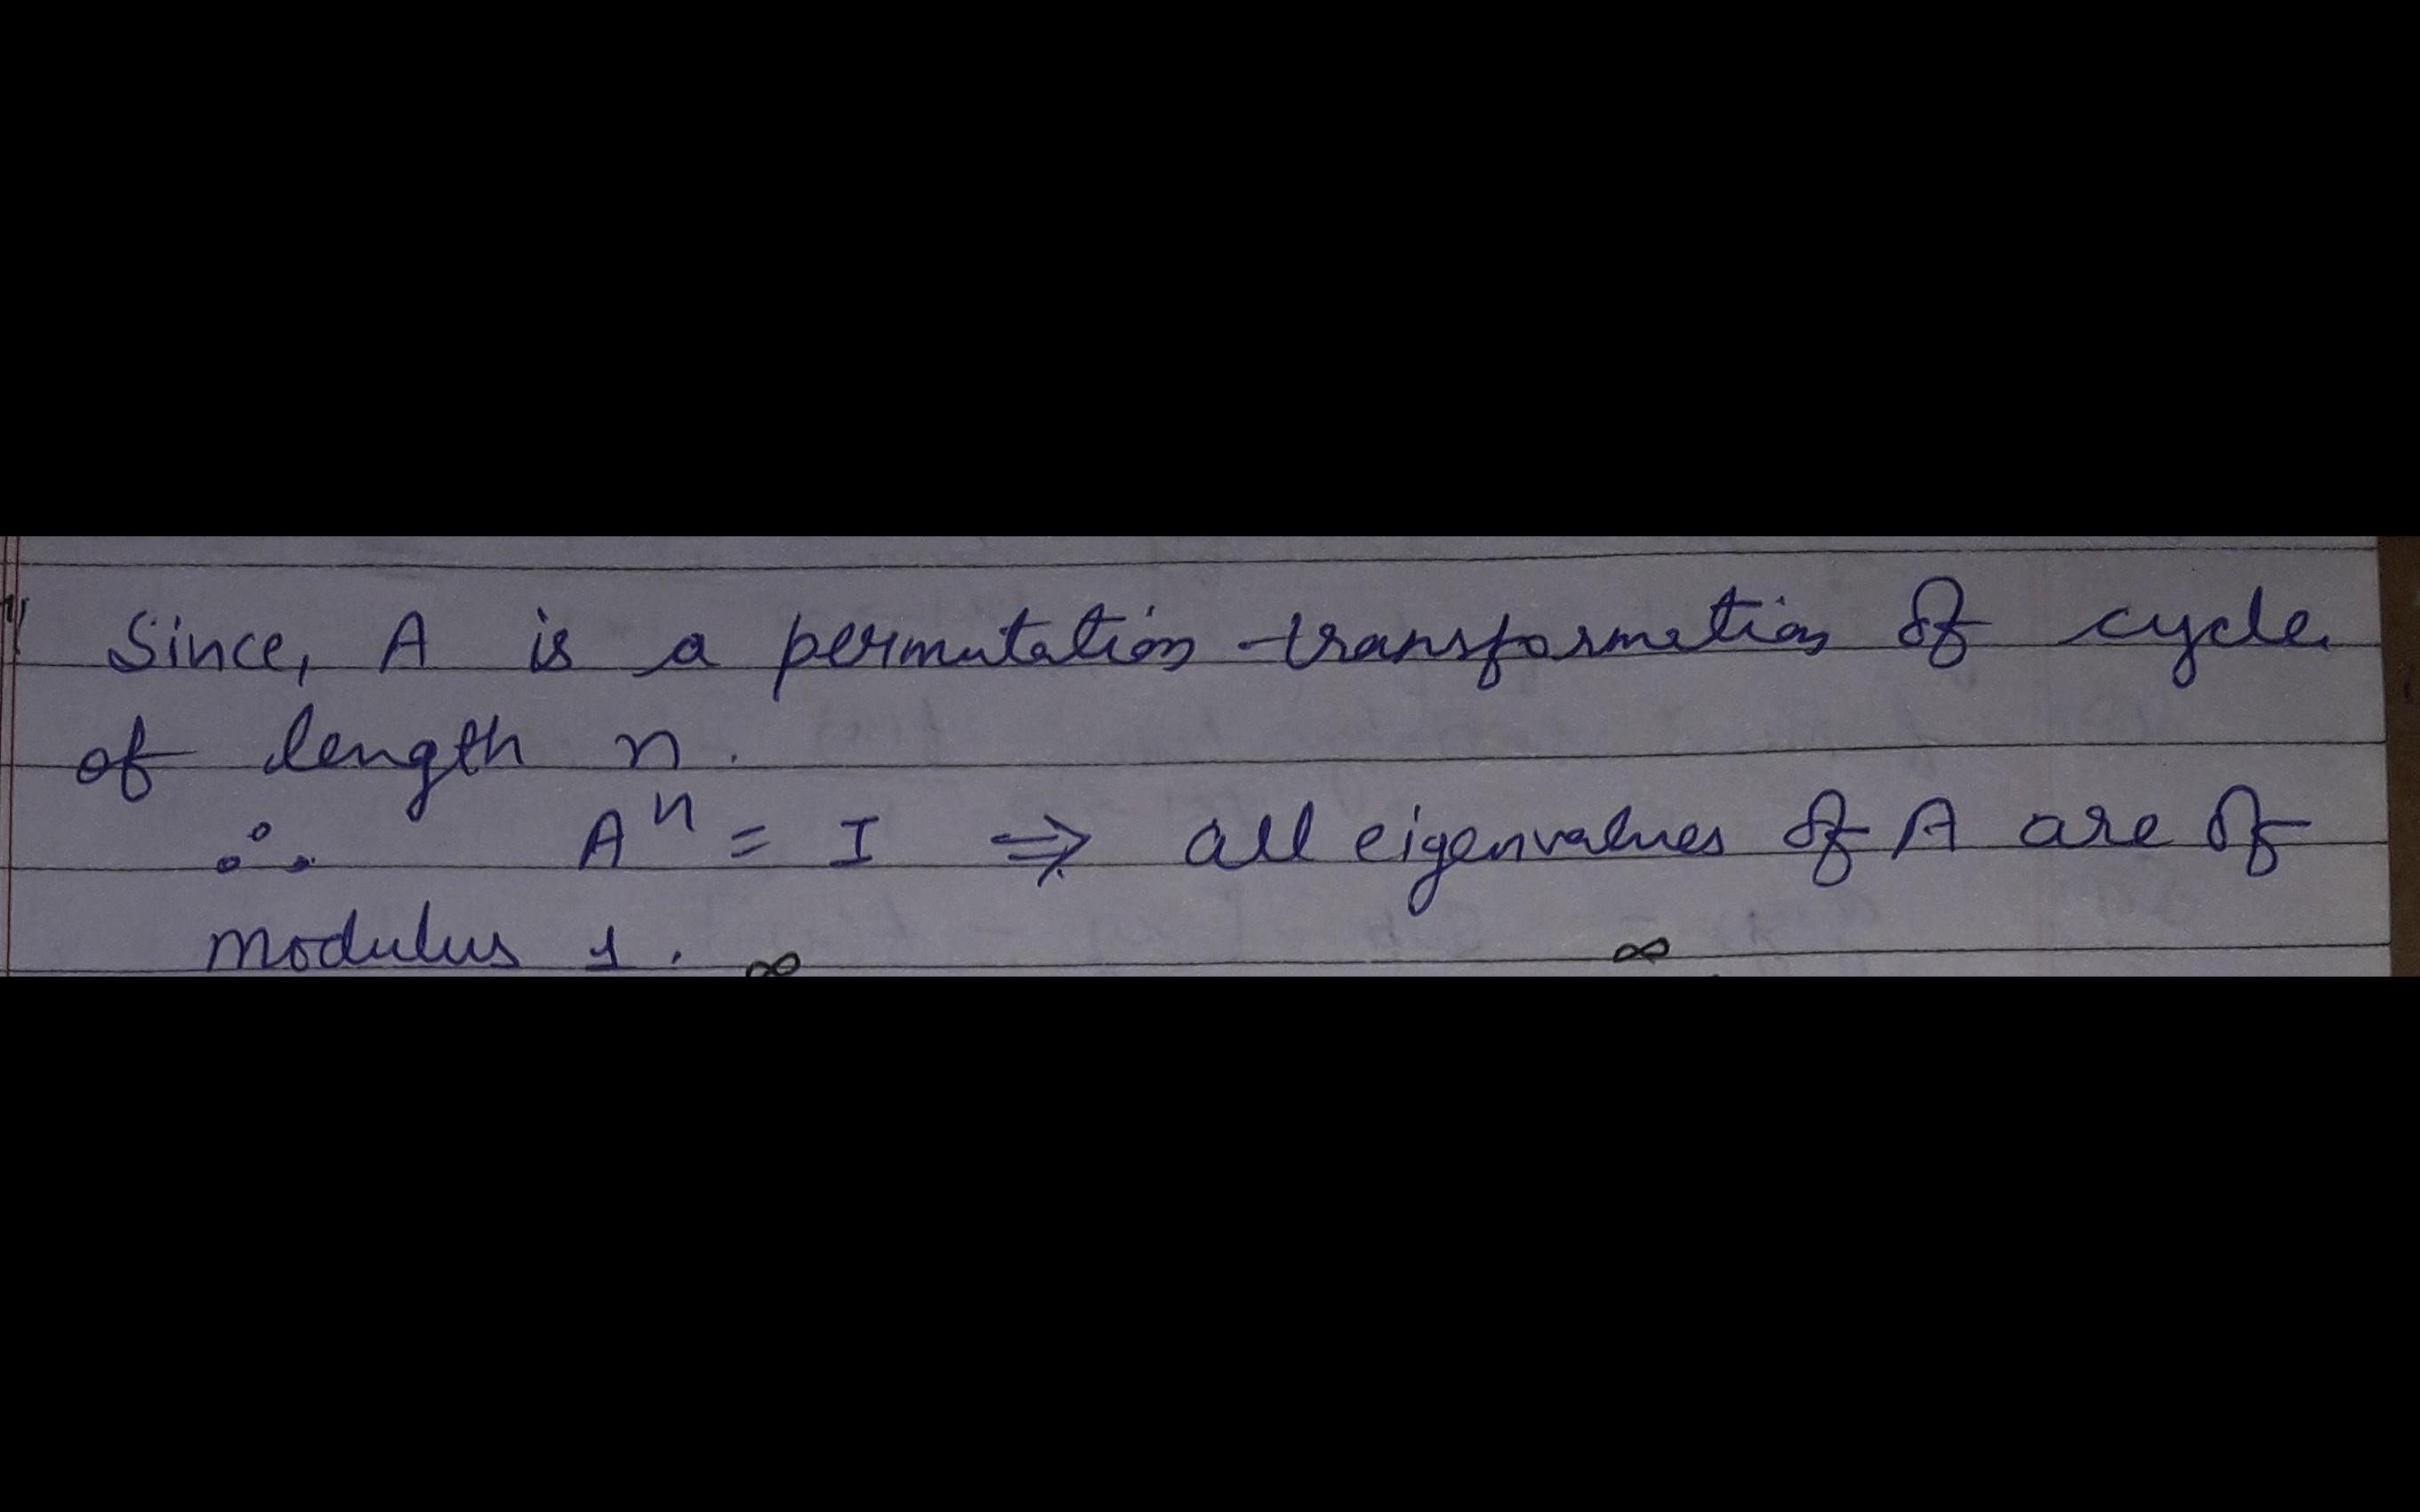 Since, A is a permutation transformation of cycle
of length n.
∴ Aⁿ = I ⇒ all eigenvalues of A are of
modulus 1. ∞ ∞